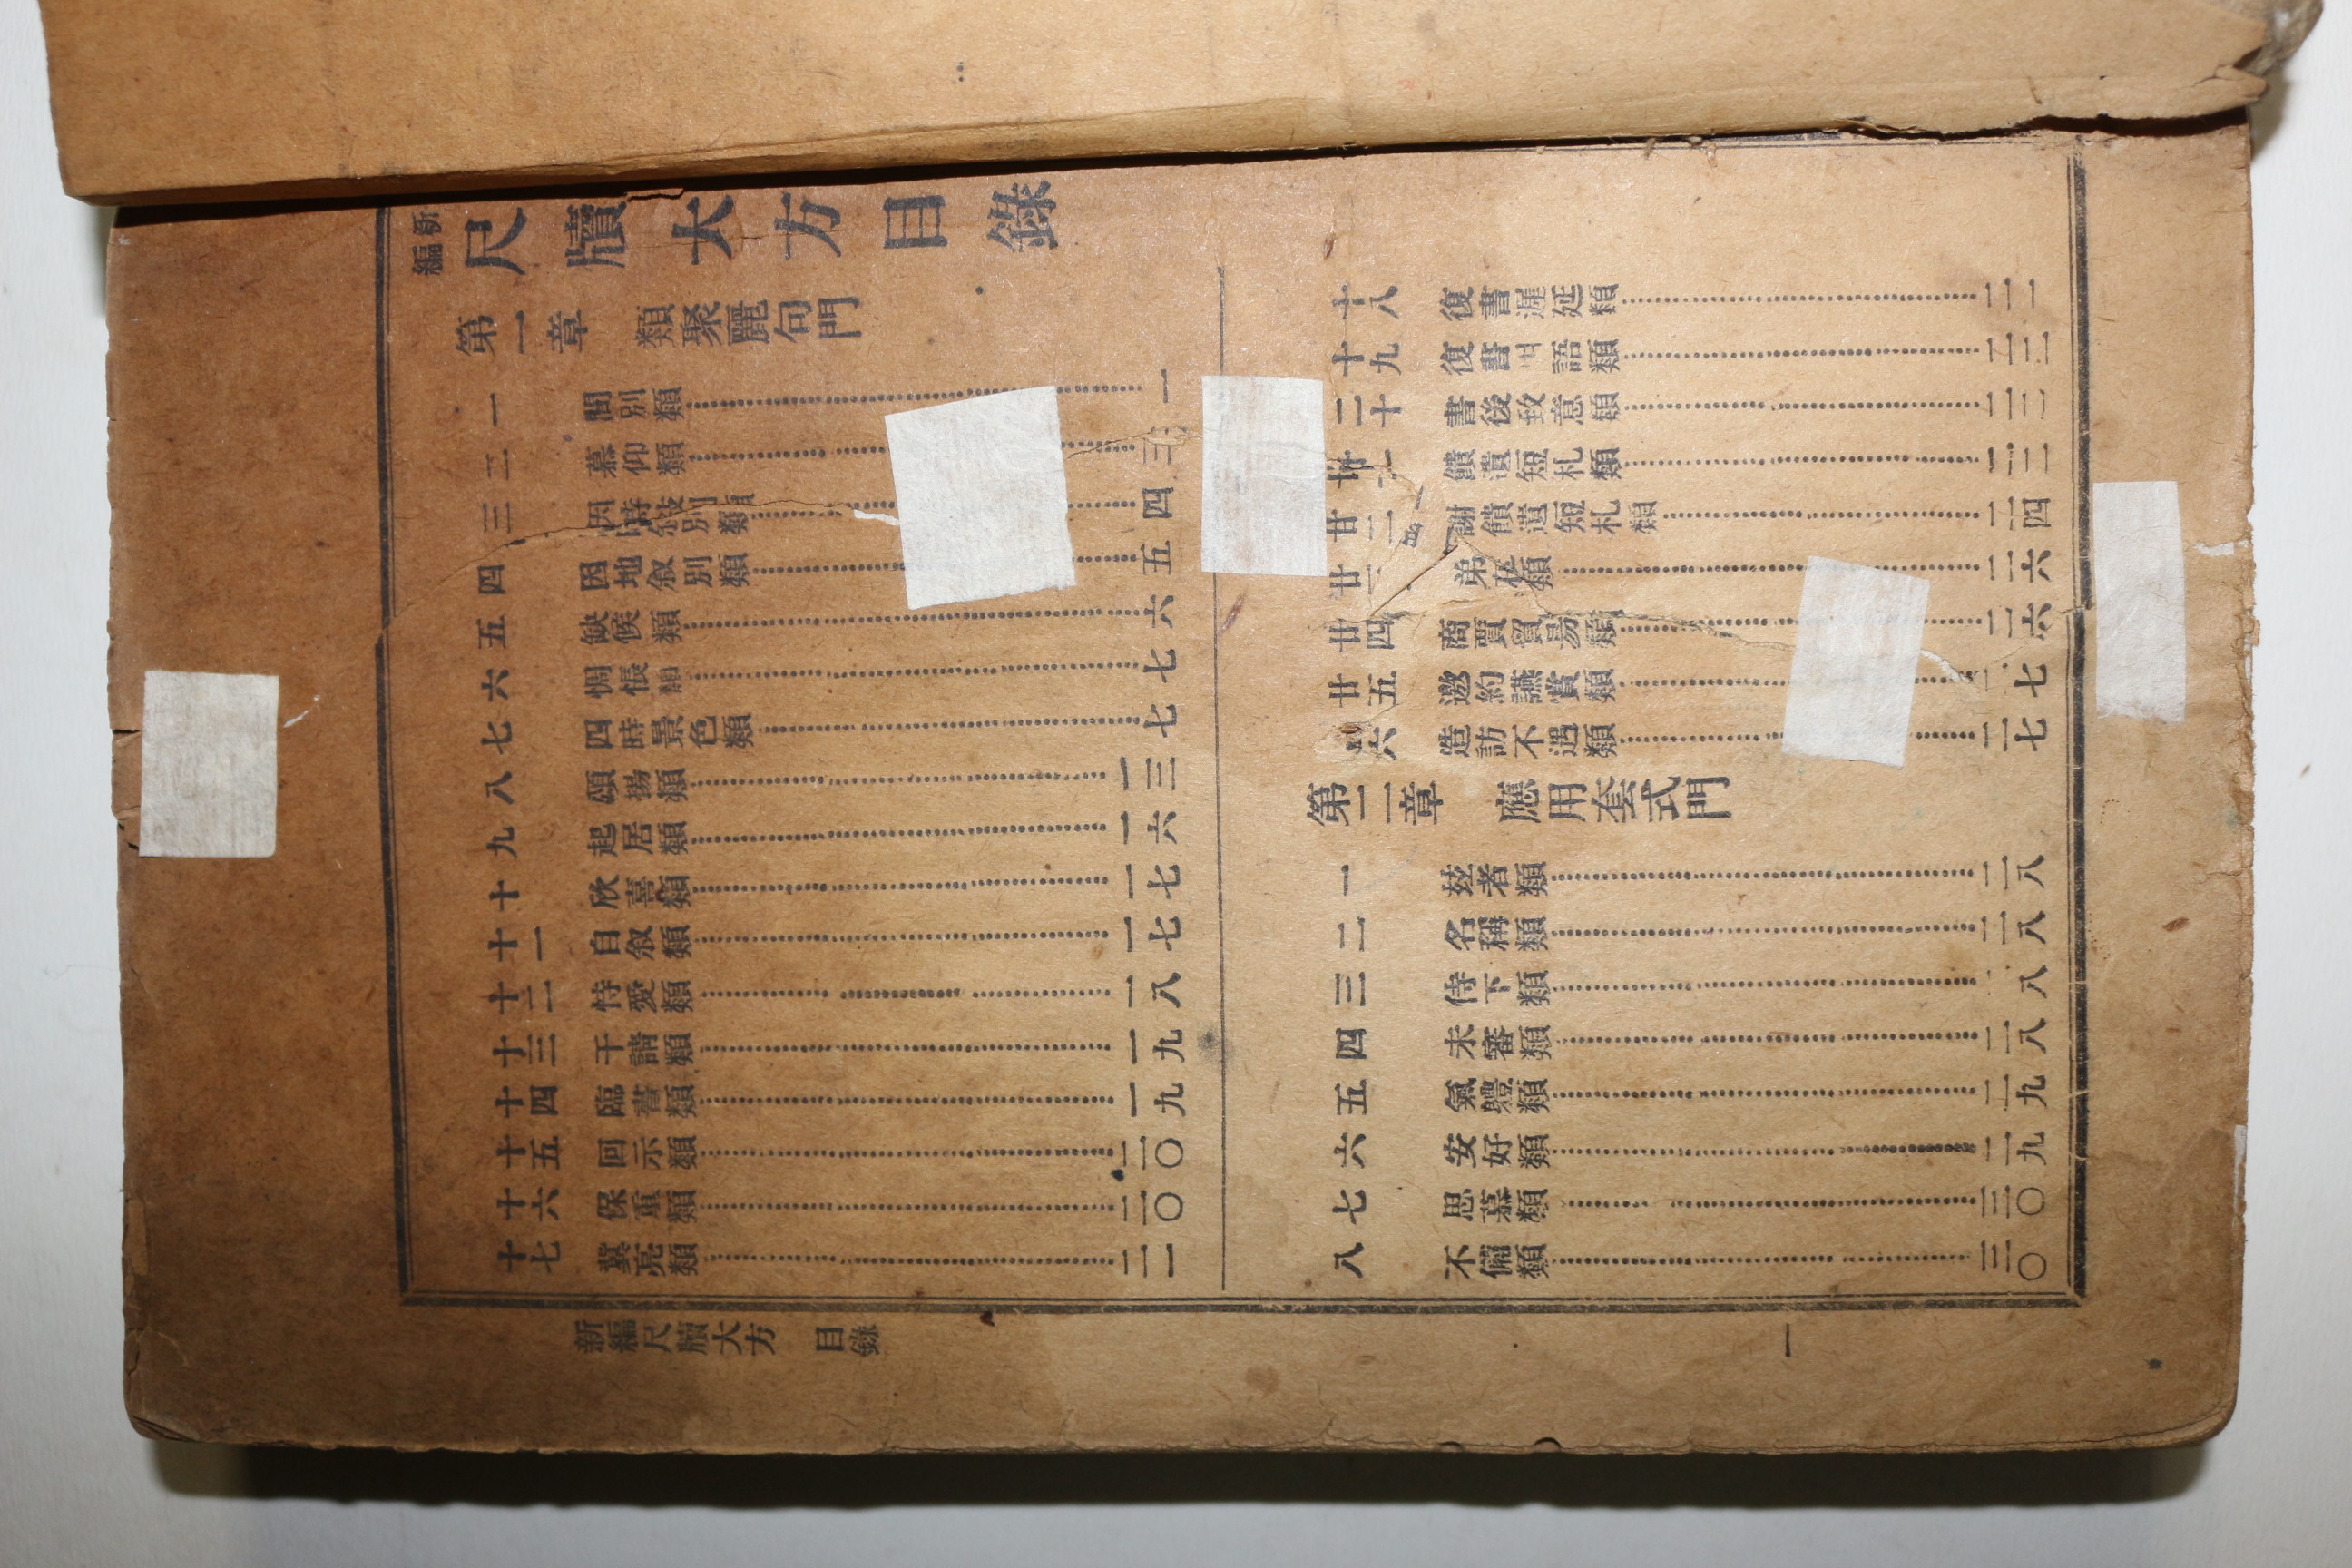 新編 尺牘大方目錄
第一章 類聚麗句門
一 間別類 一
二 慕仰類 三
三 因時敍別類 四
四 因地敍別類 五
五 缺候類 六
六 惆悵類 七
七 四時景色類 七
八 頌揚類 一三
九 起居類 一六
十 欣喜類 一七
十一 自敍類 一七
十二 恃愛類 一八
十三 干請類 一九
十四 臨書類 一九
十五 回示類 二〇
十六 保重類 二〇
十七 冀亮類 二一
十八 復書遲延類 二一
十九 復書 語類 二二
二十 書後致意類 二二
廿一 饋遺短札類 二二
廿二 謝饋遺短札類 二四
廿三 弟在類 二六
廿四 商賈貿易類 二六
廿五 邀約讌賞類 二七
六 造訪不遇類 二七
第二章 應用套式門
一 玆者類 二八
二 名稱類 二八
三 侍下類 八
四 未審類 二八
五 氣體類 二九
六 安好類 二九
七 思慕類 三〇
八 不備類 三〇
新編尺牘大方 目錄 一